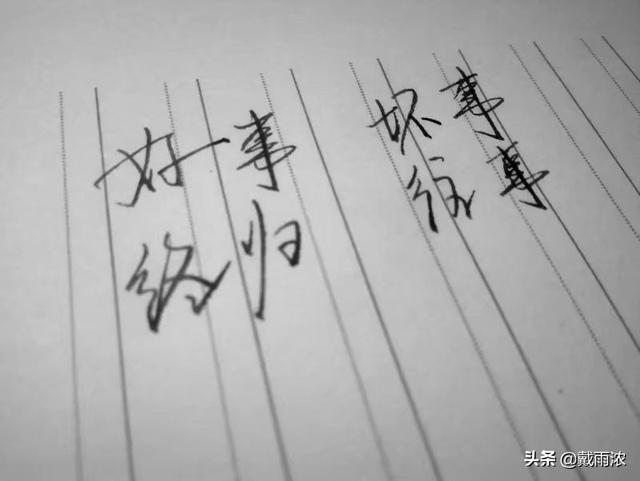 好事 坏事
终归 往事
头条 @戴雨浓